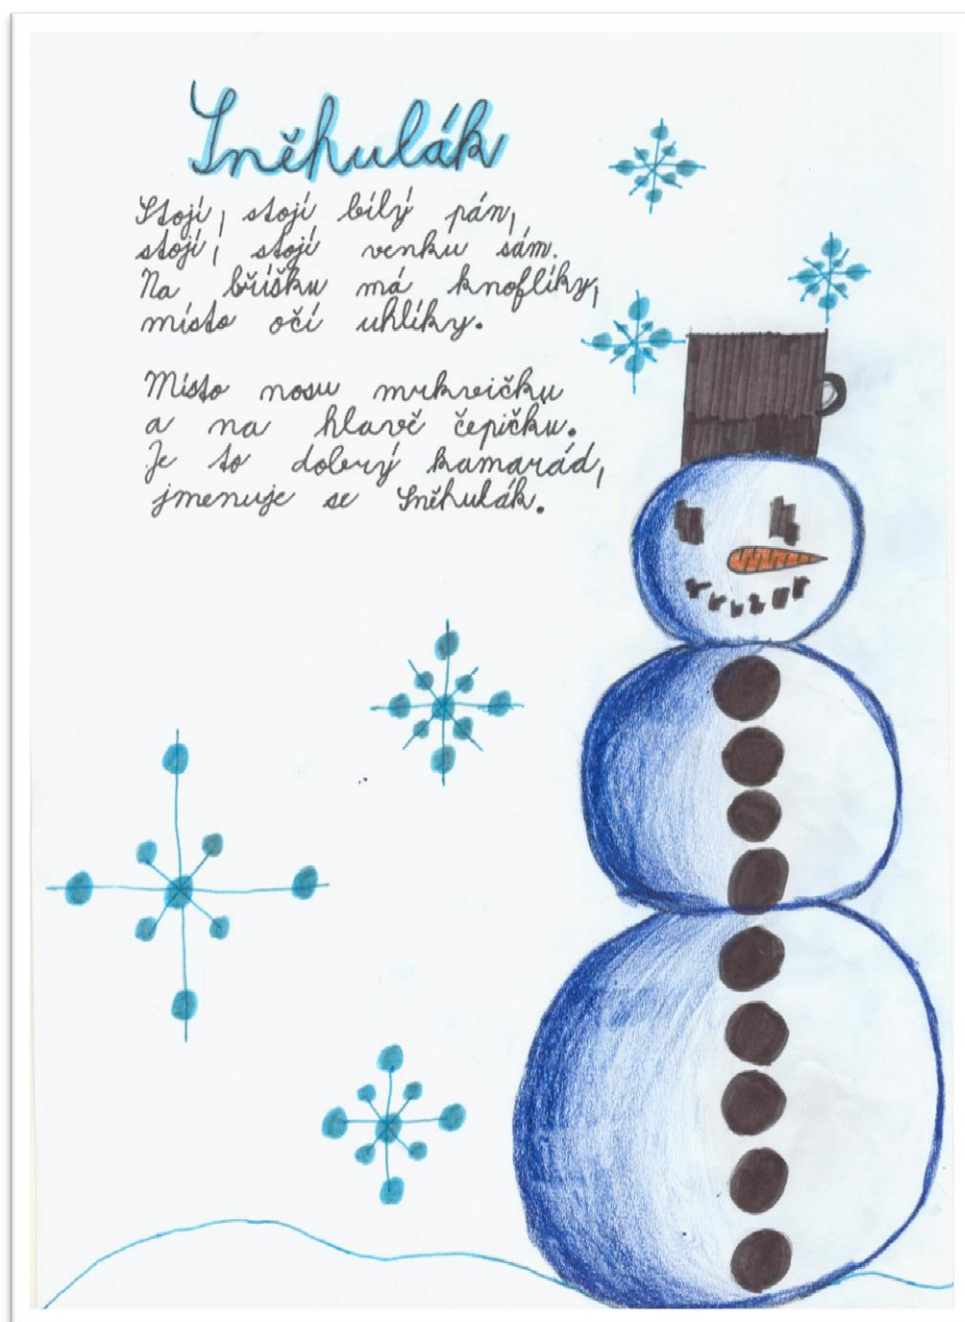 Sněhulák
Stojí, stojí bílý pán,
stojí, stojí venku sám.
Na bříšku má knoflíky,
místo očí uhlíky.
Místo nosu mrkvičku
a na hlavě čepičku.
Je to dobrý kamarád,
jmenuje se Sněhulák.